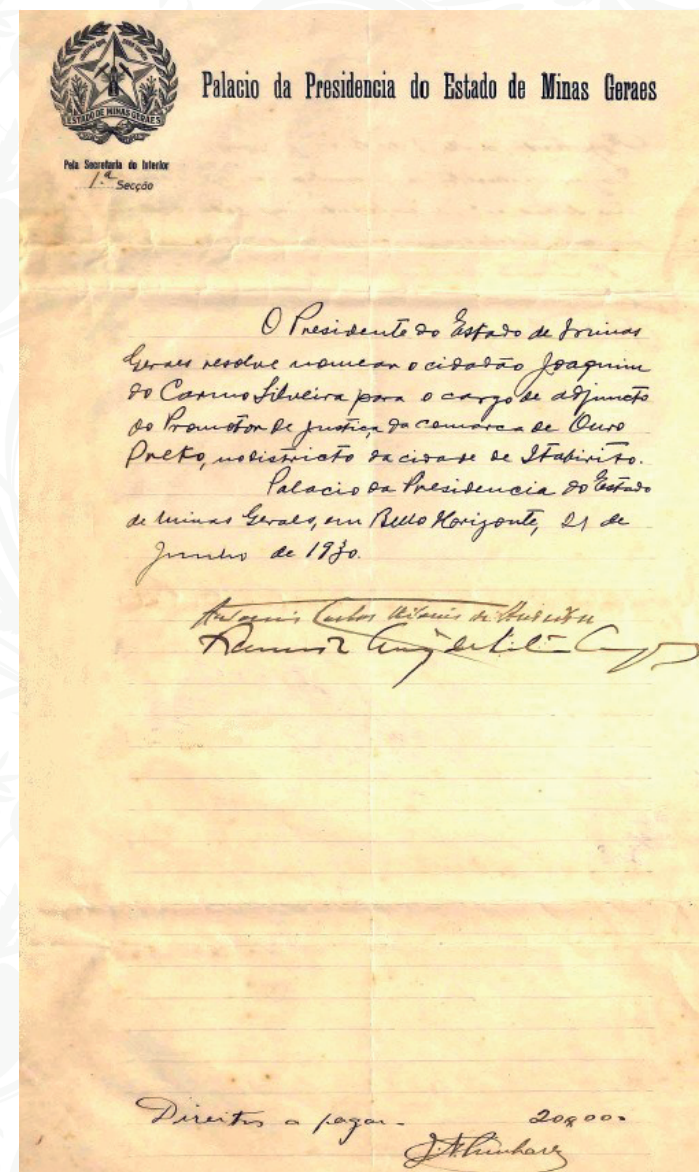 ESTADO DE MINAS GERAES
Palacio da Presidencia do Estado de Minas Geraes
Pela Secretaria do Interior
1.ª Secção
O Presidente do Estado de Minas
Geraes resolve nomear o cidadão Joaquim
do Carmo Silveira para o cargo de adjuncto
do Promotor de Justiça da comarca de Ouro
Preto, no districto da cidade de Itabirito.
Palacio da Presidencia do Estado
de Minas Geraes, em Bello Horizonte, 21 de
Junho de 1930.
Antonio Carlos Ribeiro de Andrada
Direitos a pagar - 20$000